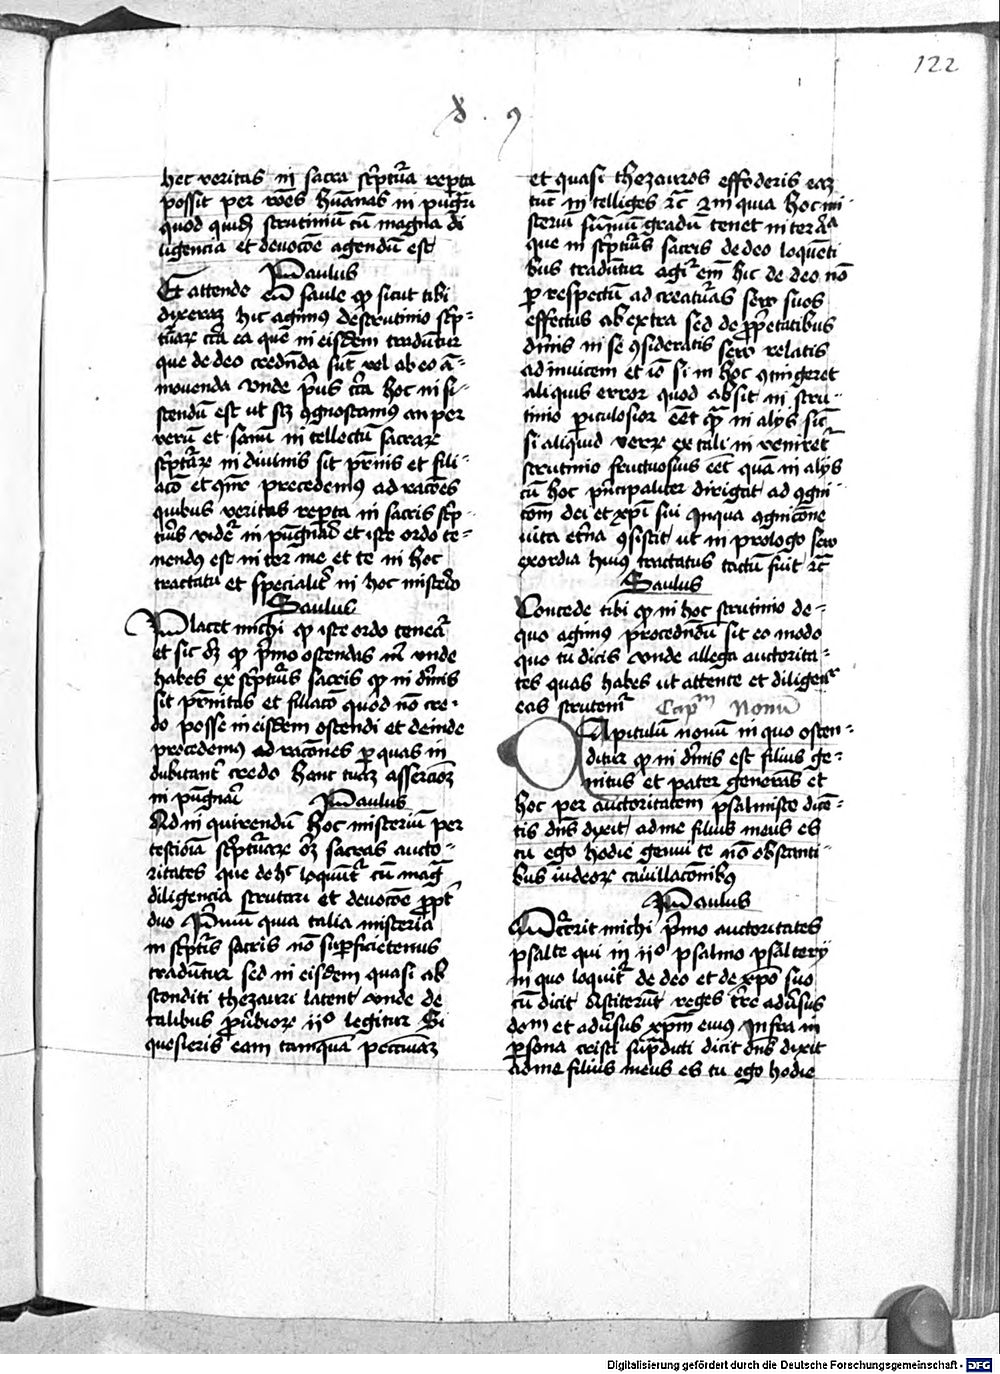 122
8 . 9
hec veritas in sacra sc̄ptura rep̄ta
possit per rōes hūanas in pugn̄
quod quid̄ scrutiniū cū magna di
ligencia et deuocōe agendū est
Paulus
Et attende eū saule qͥ sicut tibi
dixeram hic agimꝰ de scrutinio sc̄p-
tūaꝝ circa ea que in eisdem tradūtur
que de deo credn̄da sūt vel ab eo ā-
mouenda Vnde p̄us circa hoc in si-
stendū est ut scꝫ ꝯgnoscamꝰ an per
verū et sanū intellectū sacraꝝ
sc̄ptūaꝝ in diuinis sit pr̄nis et fili-
acō et qͥre precedemꝰ ad racōes
quibus veritas rep̄ta in sacris sc̄p-
turis vide͞r in pugnari et iste ordo te-
nendꝰ est inter me et te in hoc
tractatu et specialiꝉ in hoc misterio
Saulus
Placet michi qͥ iste ordo teneat͞r
et sic dꝫ qͥ p̄mo ostendas m̄ vnde
habes ex sc̄pturis sacris qͥ in diuinis
sit pr̄nitas et filiacō quod nō cre-
do posse in eisdem ostendi et deinde
procedemꝰ ad racōnes ꝑ quas in
dubitant͞r credo hanc tuaꝫ asserciōeꝫ
in pūgnari
Paulus
Ad in quirendū hoc misteriū per
testiōia sc̄ptūaꝝ ōꝫ sacras aucto-
ritates que de hͦ loquūt͞r cū mag̅
diligencia scrutari et deuocōe ꝓpt͞
duo P̄mū quia talia misteria
in sc̄pturis sacris nō superficietenus
tradūtur sed in eisdem quasi ab
sconditi thezauri latent vnde de
talibus ꝓūbioꝝ iiͦ legitur Si
quesieris eam tamquā peccuniaꝫ
et quasi thezauros effoderis eaꝫ
tūc intelliges ꝛc̄ 2m quia hoc mi-
steriū sūmū gradū tenet inter ōia
que in sc̄pturis sacris de deo loquēti
bus tradūtur agit͞r em̄ hic de deo nō
ꝑ respectū ad creatūas seu suos
effectus ab extra sed de ꝓpetatibus
diuinis in se ꝯsideratis seu relatis
ad inuicem et iō si in hoc ꝯtingeret
aliquis error quod absit in scru-
tinio ꝑiculosior eet quā in alijs sic̄
si aliquid veꝝ ex tali in veniret͞r
scrutinio fructuosius eet quā in alijs
cū hoc p̄ncipaliter dirigat͞r ad ꝯgni-
cōem dei et xp̄i sui In qua ꝯgnicōne
vita et̄na ꝯsistit vt in prologo seu
exordia huiꝰ tractatus tactū fuit ꝛc̄
Saulus
Concede tibi qͥ in hoc scrutinio de-
quo agimꝰ procedn̄dū sit eo modo
quo tū dicis vnde allega auctorita-
tes quas habes ut attente et diligent͞r
eas scrutem͞r
Cap̄m Nonū
Capitulū nonū in quo osten-
ditur qͥ in diuinis est filius ge-
nitus et pater generās et
hoc per auctoritatem psalmiste dicē-
tis dn̄s dixit ad me filius meus es
tu ego hodie genui te nō obstanti-
bus iudeoꝝ cauillaconibꝰ
Paulus
Occurit michi p̄mo auctoritates
psalte qui in iiͦ psalmo psalterij
in quo loquit͞r de deo et de xp̄o suo
cū dicit Astiterūt reges t̄re aduersus
dom et adūsus xp̄m eius Infra in
ꝑsona cristi sup̄dicti dicit dn̄s dixit
ad me filius meus es tu ego hodie
Digitalisierung gefördert durch die Deutsche Forschungsgemeinschaft - DFG